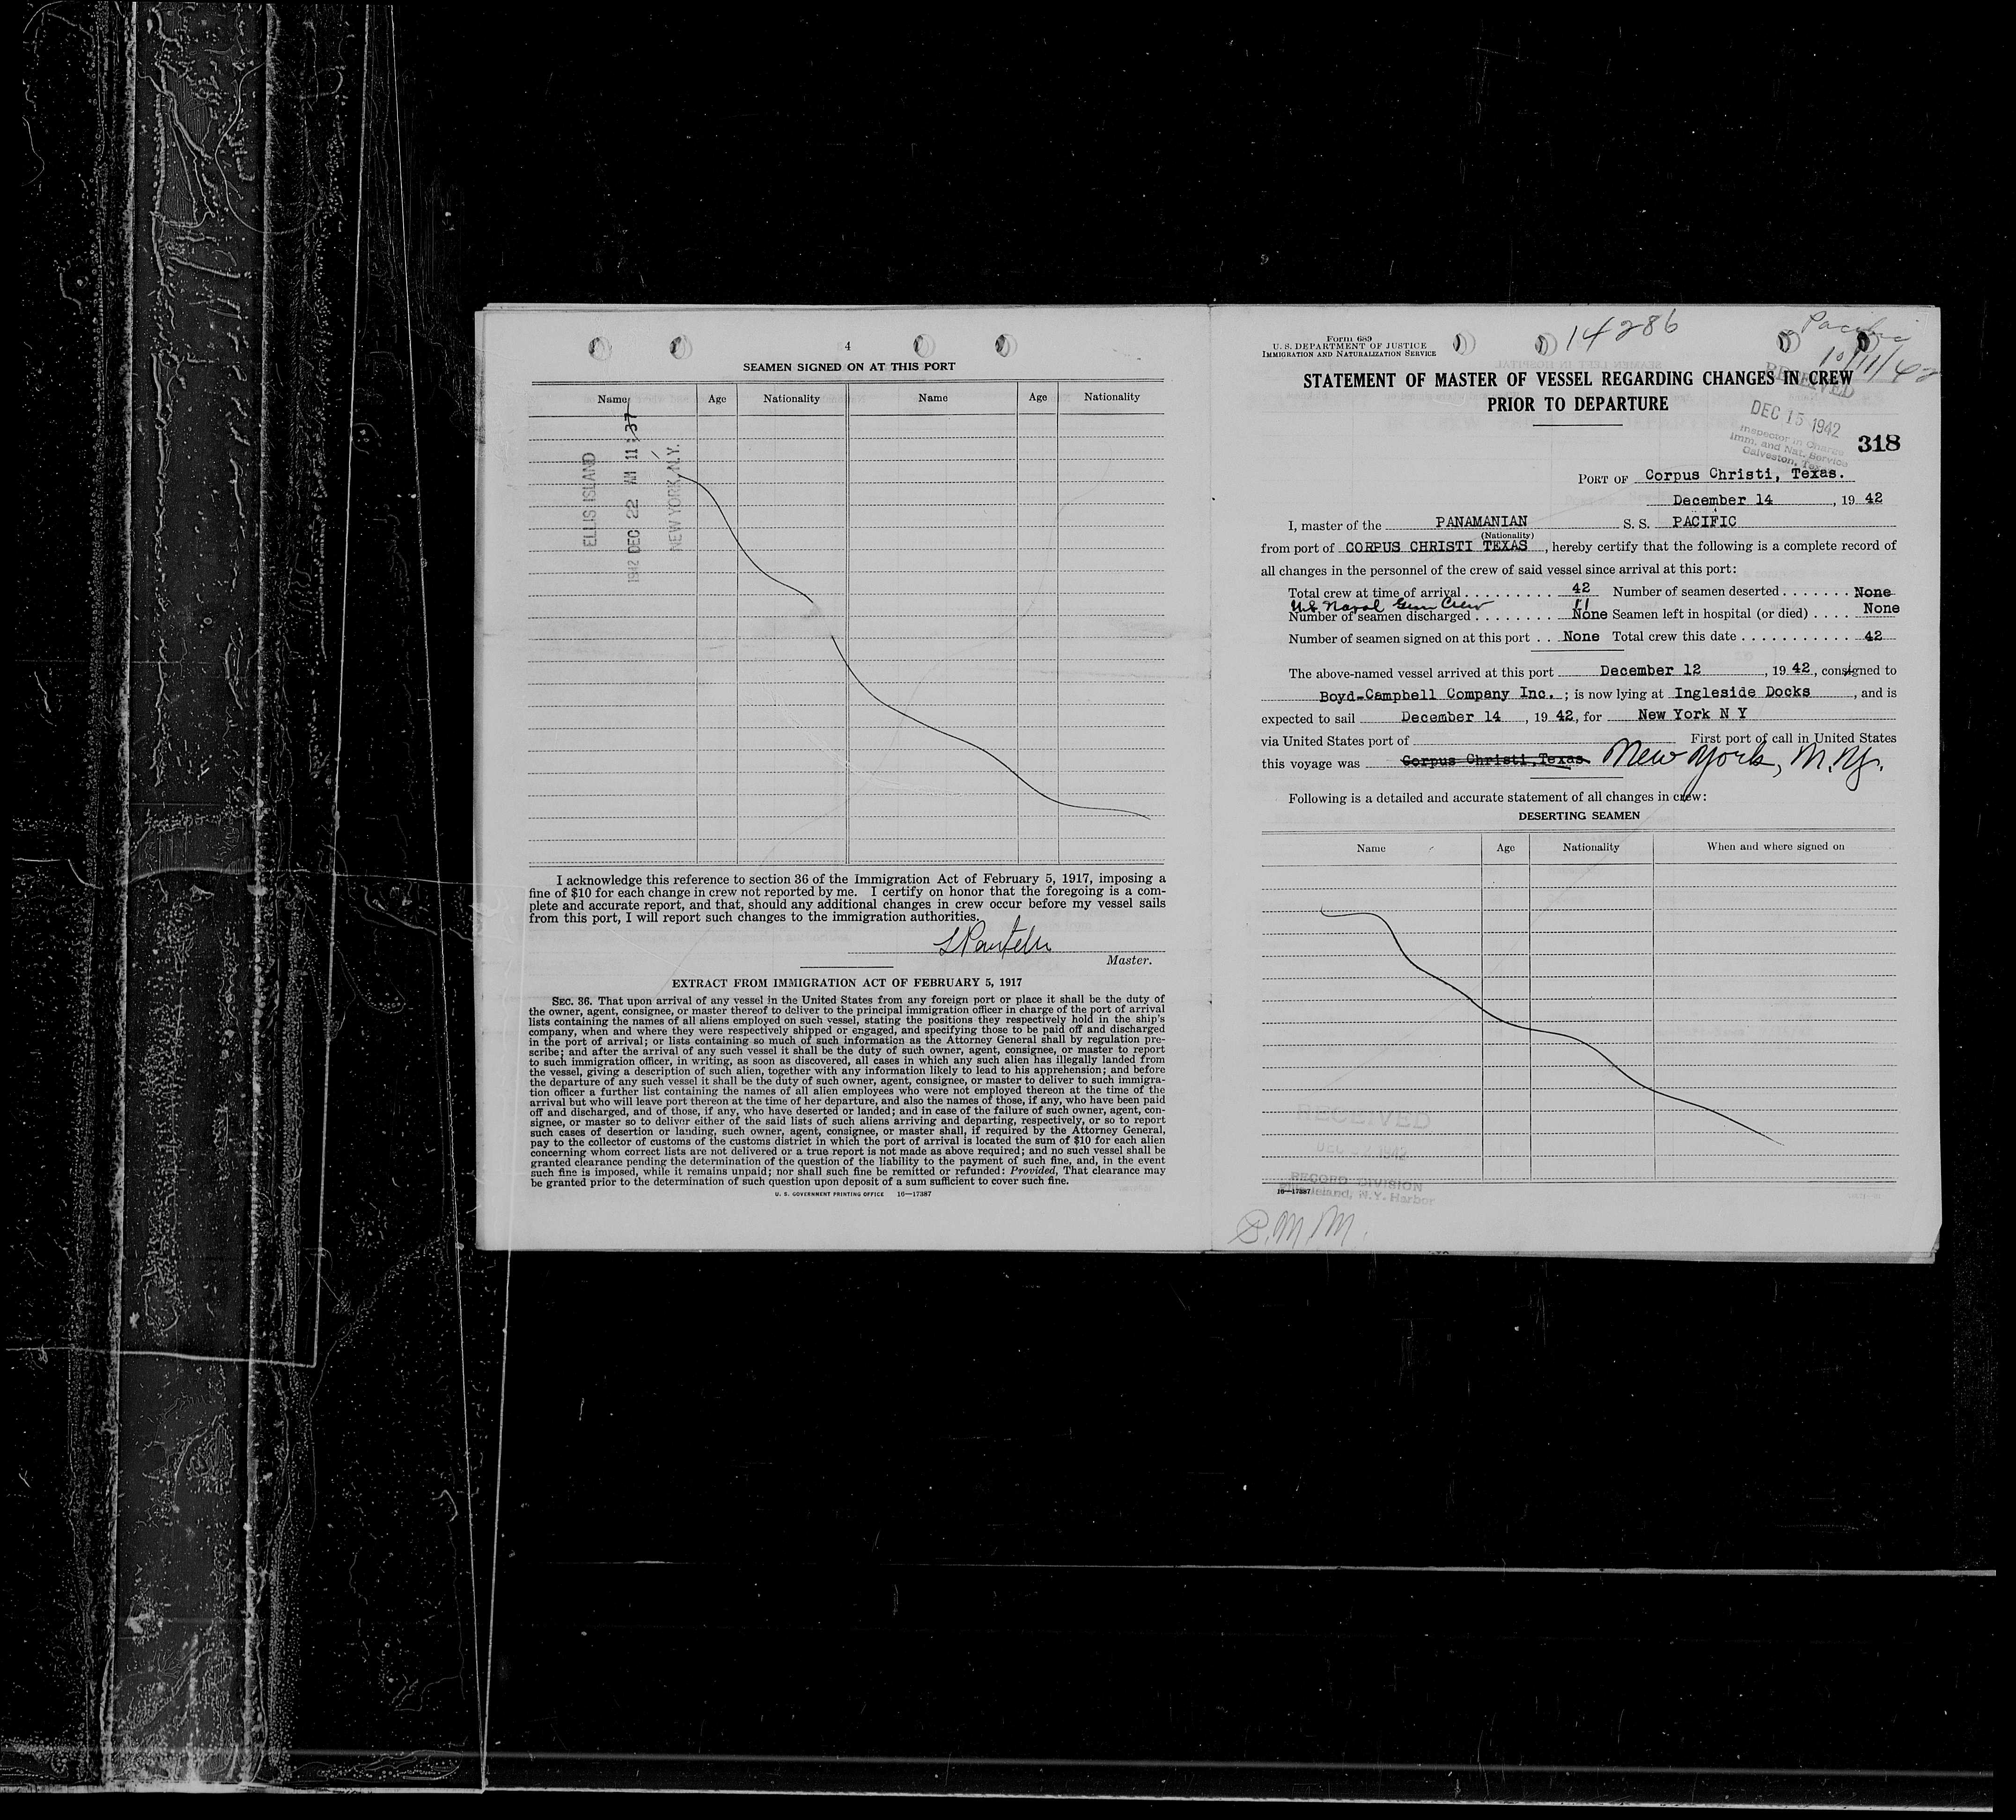 4
SEAMEN SIGNED ON AT THIS PORT
Name Age Nationality Name Age Nationality
ELLIS ISLAND
1942 DEC 22 AM 11:37
NEW YORK, N.Y.
I acknowledge this reference to section 36 of the Immigration Act of February 5, 1917, imposing a
fine of $10 for each change in crew not reported by me. I certify on honor that the foregoing is a com-
plete and accurate report, and that, should any additional changes in crew occur before my vessel sails
from this port, I will report such changes to the immigration authorities.
Master.
EXTRACT FROM IMMIGRATION ACT OF FEBRUARY 5, 1917
SEC. 36. That upon arrival of any vessel in the United States from any foreign port or place it shall be the duty of
the owner, agent, consignee, or master thereof to deliver to the principal immigration officer in charge of the port of arrival
lists containing the names of all aliens employed on such vessel, stating the positions they respectively hold in the ship's
company, when and where they were respectively shipped or engaged, and specifying those to be paid off and discharged
in the port of arrival; or lists containing so much of such information as the Attorney General shall by regulation pre-
scribe; and after the arrival of any such vessel it shall be the duty of such owner, agent, consignee, or master to report
to such immigration officer, in writing, as soon as discovered, all cases in which any such alien has illegally landed from
the vessel, giving a description of such alien, together with any information likely to lead to his apprehension; and before
the departure of any such vessel it shall be the duty of such owner, agent, consignee, or master to deliver to such immigra-
tion officer a further list containing the names of all alien employees who were not employed thereon at the time of the
arrival but who will leave port thereon at the time of her departure, and also the names of those, if any, who have been paid
off and discharged, and of those, if any, who have deserted or landed; and in case of the failure of such owner, agent, con-
signee, or master so to deliver either of the said lists of such aliens arriving and departing, respectively, or so to report
such cases of desertion or landing, such owner, agent, consignee, or master shall, if required by the Attorney General,
pay to the collector of customs of the customs district in which the port of arrival is located the sum of $10 for each alien
concerning whom correct lists are not delivered or a true report is not made as above required; and no such vessel shall be
granted clearance pending the determination of the question of the liability to the payment of such fine, and, in the event
such fine is imposed, while it remains unpaid; nor shall such fine be remitted or refunded: Provided, That clearance may
be granted prior to the determination of such question upon deposit of a sum sufficient to cover such fine.
U. S. GOVERNMENT PRINTING OFFICE 16—17387
Form 689
U. S. DEPARTMENT OF JUSTICE
IMMIGRATION AND NATURALIZATION SERVICE
14286
Pacific
10/11/42
STATEMENT OF MASTER OF VESSEL REGARDING CHANGES IN CREW
PRIOR TO DEPARTURE
RECEIVED
DEC 15 1942
Inspector in Charge
Imm. and Nat. Service
Galveston, Tex.
318
PORT OF Corpus Christi, Texas.
December 14, 19 42
I, master of the PANAMANIAN S. S. PACIFIC
(Nationality)
from port of CORPUS CHRISTI TEXAS, hereby certify that the following is a complete record of
all changes in the personnel of the crew of said vessel since arrival at this port:
Total crew at time of arrival . . . . . . . . . 42 Number of seamen deserted . . . . . . . None
U.S. Naval Gun Crew 11
Number of seamen discharged . . . . . . . . None Seamen left in hospital (or died) . . . . None
Number of seamen signed on at this port . . None Total crew this date . . . . . . . . . . . 42
The above-named vessel arrived at this port December 12, 19 42, consigned to
Boyd-Campbell Company Inc. ; is now lying at Ingleside Docks, and is
expected to sail December 14, 19 42, for New York N Y
via United States port of First port of call in United States
this voyage was Corpus Christi,Texas New York, N.Y.
Following is a detailed and accurate statement of all changes in crew:
DESERTING SEAMEN
Name Age Nationality When and where signed on
RECEIVED
DEC 22 1942
RECORD DIVISION
Ellis Island, N.Y. Harbor
16—17387